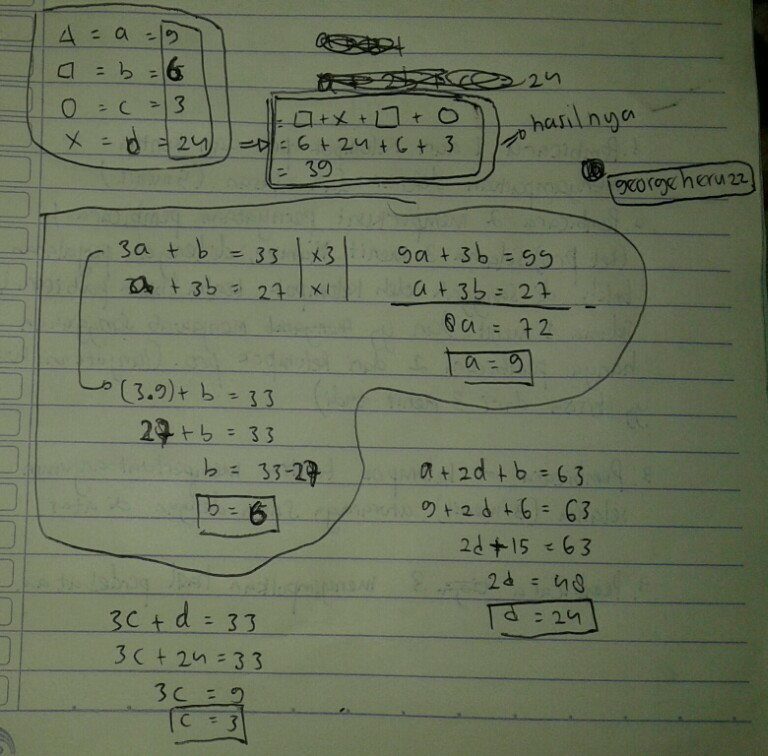 Δ = a = 9
□ = b = 6
O = c = 3
x = d = 24
24
= □ + x + □ + O
= 6 + 24 + 6 + 3
= 39
hasilnya
georgeheru22
3a + b = 33 | x3 |
a + 3b = 27 | x1 |
9a + 3b = 99
a + 3b = 27 -
8a = 72
a = 9
(3.9) + b = 33
27 + b = 33
b = 33-27
b = 6
a + 2d + b = 63
9 + 2d + 6 = 63
2d + 15 = 63
2d = 48
d = 24
3c + d = 33
3c + 24 = 33
3c = 9
c = 3